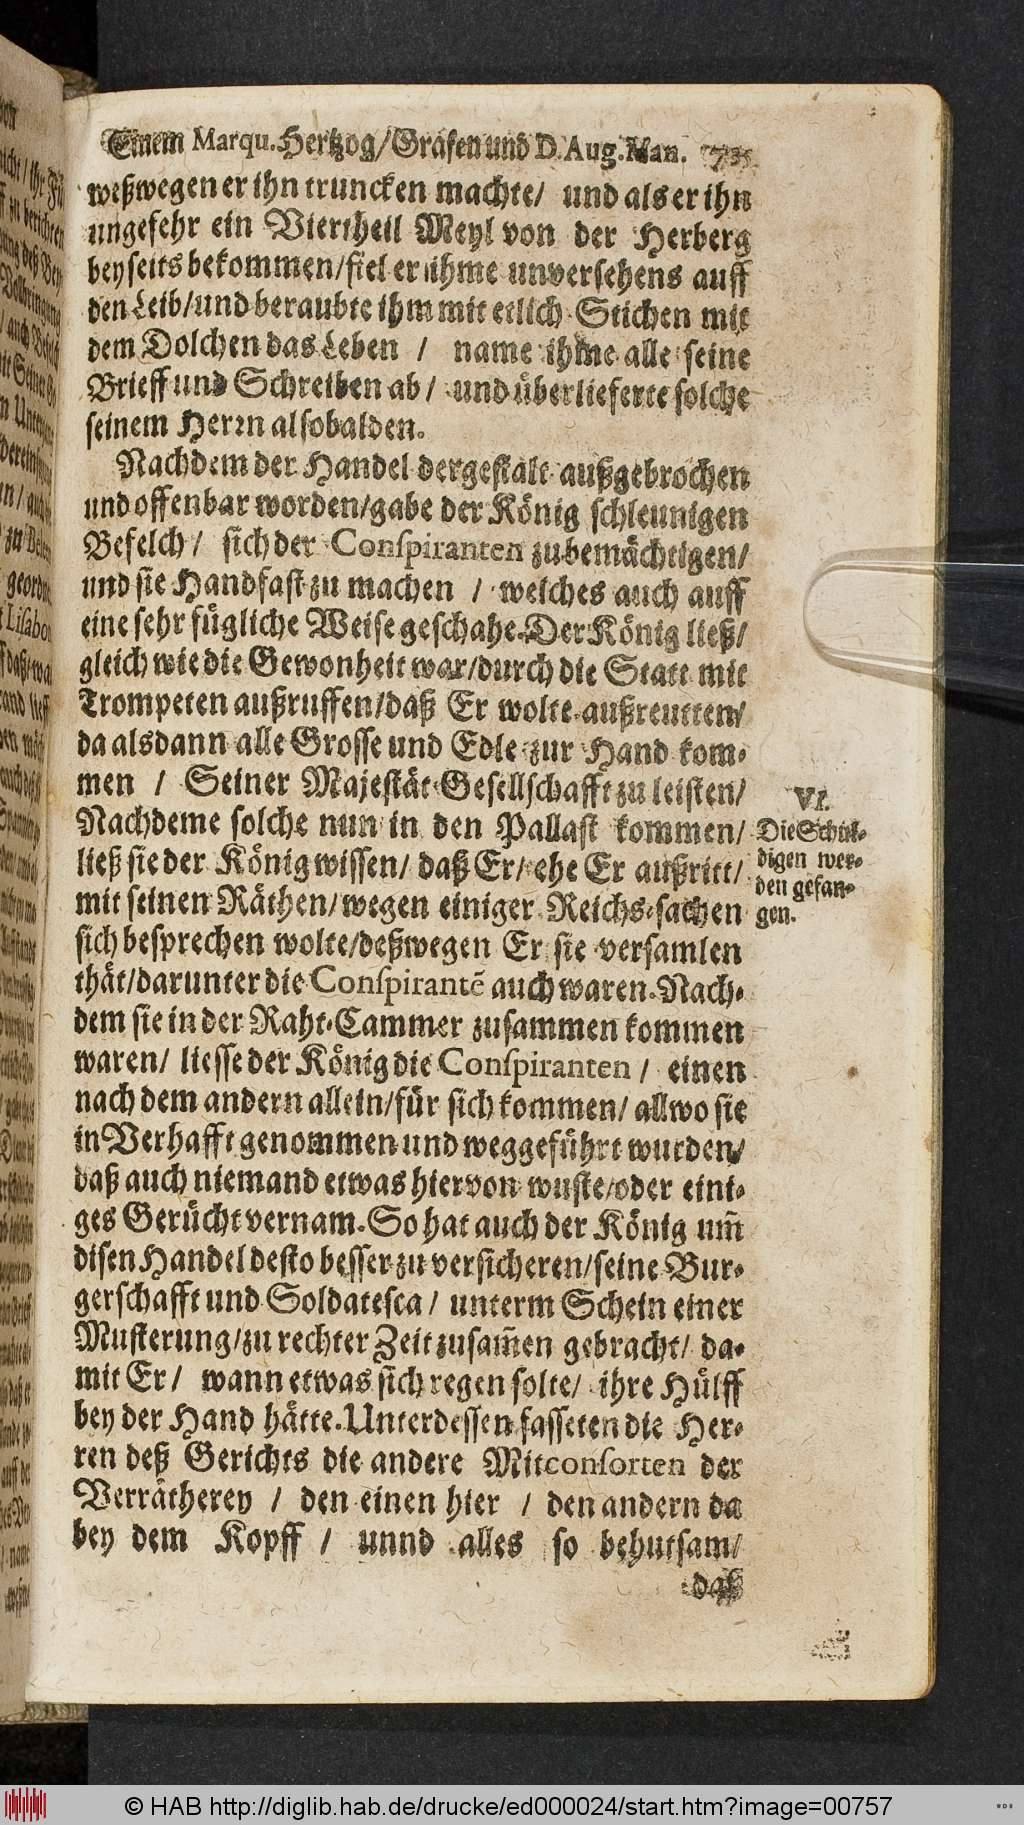 Einem Marqu. Hertzog/Grafen und D. Aug. Man. 735
weßwegen er ihn truncken machte/ und als er ihn
ungefehr ein Viertheil Meyl von der Herberg
beyseits bekommen/fiel er ihme unversehens auff
den Leib/und beraubte ihm mit etlich Stichen mit
dem Dolchen das Leben / name ihme alle seine
Brieff und Schreiben ab/ und überlieferte solche
seinem Herrn alsobalden.
Nachdem der Handel dergestalt außgebrochen
und offenbar worden/gabe der König schleunigen
Befelch/ sich der Conſpiranten zubemächtigen/
und sie Handfast zu machen / welches auch auff
eine sehr fügliche Weise geschahe. Der König ließ/
gleich wie die Gewonheit war/durch die Statt mit
Trompeten außruffen/daß Er wolte außreutten/
da alsdann alle Grosse und Edle zur Hand kom-
men / Seiner Majestät Gesellschafft zu leisten/
Nachdeme solche nun in den Pallast kommen/
ließ sie der König wissen/ daß Er/ ehe Er außritt/
mit seinen Räthen/wegen einiger Reichs-sachen
sich besprechen wolte/deßwegen Er sie versamlen
thät/darunter die Conſpirantẽ auch waren. Nach-
dem sie in der Raht-Cammer zusammen kommen
waren/ liesse der König die Conſpiranten / einen
nach dem andern allein/für sich kommen/ allwo sie
in Verhafft genommen und weggeführt wurden/
daß auch niemand etwas hiervon wuste/oder eini-
ges Gerücht vernam. So hat auch der König um̃
disen Handel desto besser zu versicheren/seine Bur-
gerschafft und Soldatesca/ unterm Schein einer
Musterung/zu rechter Zeit zusam̃en gebracht/ da-
mit Er/ wann etwas sich regen solte/ ihre Hülff
bey der Hand hätte. Unterdessen fasseten die Her-
ren deß Gerichts die andere Mitconſorten der
Verrätherey / den einen hier / den andern da
bey dem Kopff / unnd alles so behutsam/
daß
VI.
Die Schul-
digen wer-
den gefan-
gen.
© HAB http://diglib.hab.de/drucke/ed000024/start.htm?image=00757